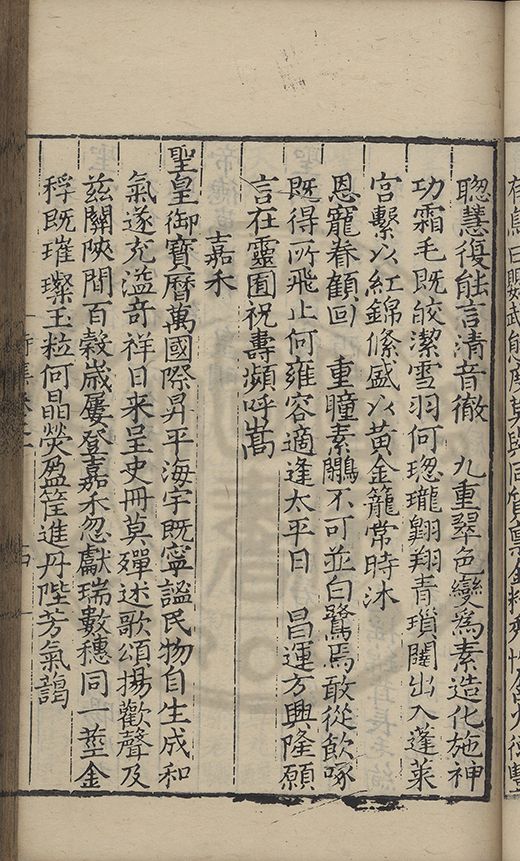 聰慧復能言清音徹　九重翠色變爲素造化施神
功霜毛既皎潔雪羽何璁瓏翺翔青瑣闥出入蓬萊
宮繫以紅錦絛盛以黃金籠常時沐
恩寵眷顧回　重瞳素鷴不可並白鷺焉敢從飲啄
既得所飛止何雍容適逢太平日　昌運方興隆願
言在靈囿祝壽頻呼嵩
嘉禾
聖皇御寶曆萬國際昇平海宇既寧謐民物自生成和
氣遂充溢奇祥日来呈史冊莫殫述歌頌揚歡聲及
茲關陜間百穀歲屢登嘉禾忽獻瑞數穗同一莖金
稃既璀璨玉粒何晶熒盈筐進丹陛芳氣藹